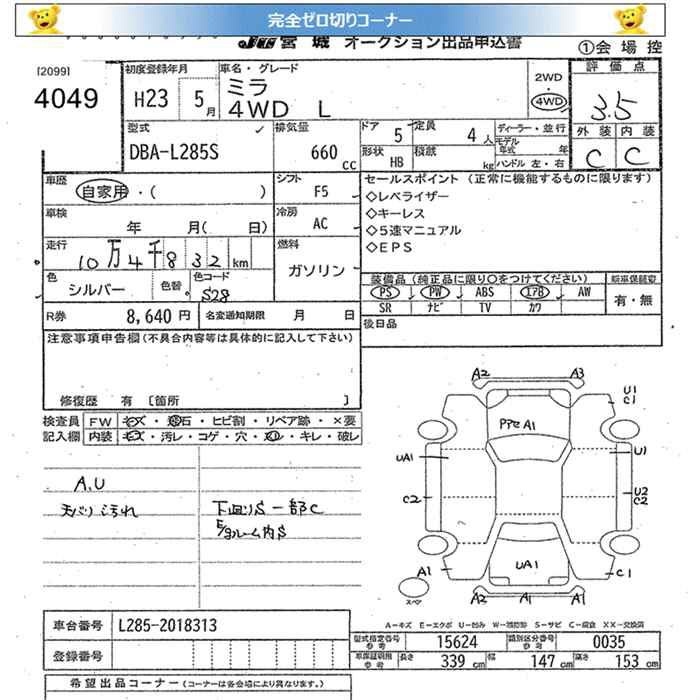 完全ゼロ切りコーナー
JU宮城 オークション出品申込書
①会場控
[2099]
4049
初度登録年月
H23 5月
車名・グレード
ミラ
4WD L
2WD
・
4WD
評価点
3.5
外装 内装
C C
型式
DBA-L285S
排気量
660 cc
ドア 5
定員 4人
ディーラー・並行
モデル年式 年
形状 HB
積載 kg
ハンドル 左・右
車歴
自家用・( )
シフト
F5
車検
年 月( 日)
冷房
AC
走行
10万4千832km
燃料
ガソリン
色
シルバー
色替
色コード
S28
R券 8,640円
名変通知期限 月 日
セールスポイント (正常に機能するものに限ります)
◇レベライザー
◇キーレス
◇5速マニュアル
◇EPS
装備品(純正品に限り○をつけてください)
PS PW ABS エアB AW
SR ナビ TV カワ
新車保証書
有・無
後日品
注意事項申告欄(不具合内容等は具体的に記入して下さい)
修復歴 有 [箇所 ]
検査員記入欄
FW キズ・飛石・ヒビ割・リペア跡・×要
内装 キズ・汚レ・コゲ・穴・・キレ・破レ
A.U
天バリ汚れ
下回りS一部C
E/gルーム内S
A2 A3
U1
C1
PPセA1
UA1
U1
C2
U2
C2
UA1
A1
C1
スペア
A2 A1 A1
A-キズ E-エクボ U-凹み W-補修跡 S-サビ C-腐食 XX-交換済
車台番号 L285-2018313
登録番号
型式指定番号 参考 15624
類別区分番号 参考 0035
車庫証明用 参考 長さ 339cm 幅 147cm 高さ 153cm
希望出品コーナー(コーナーは各会場により異なります。)